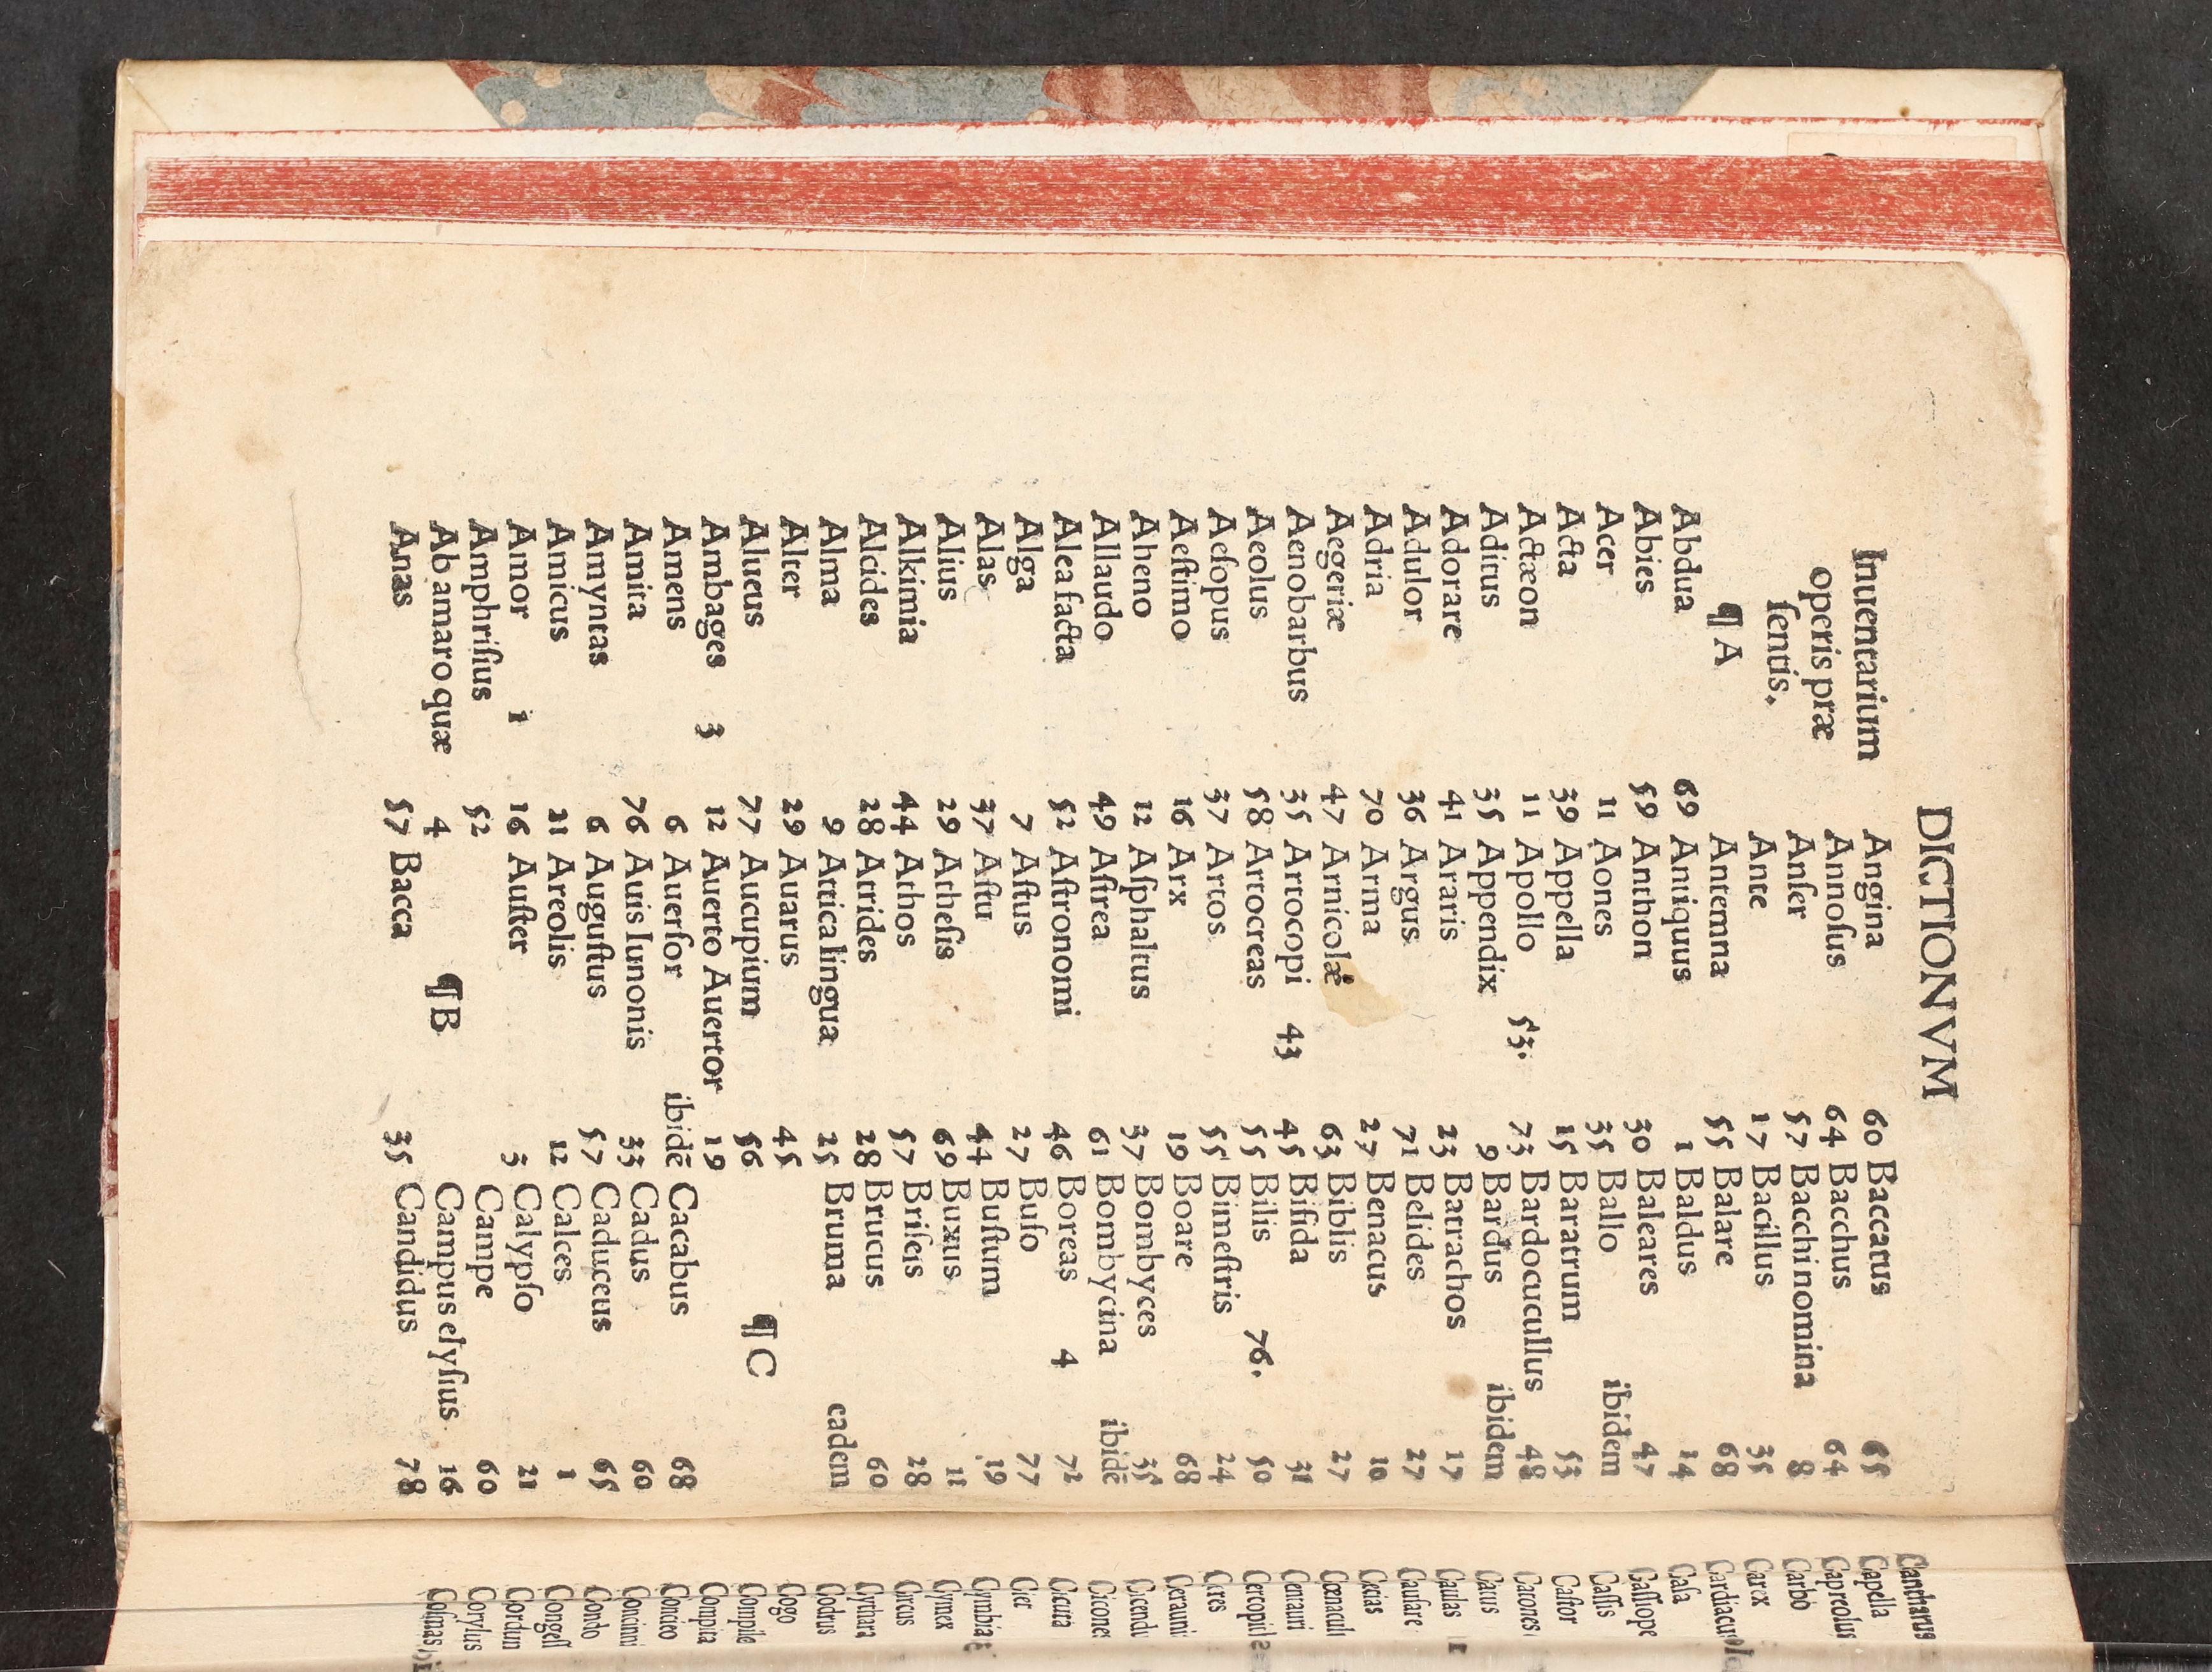 DICTIONVM
Inuentarium
operis præ
ſentis.
¶ A
Abdua 69
Abies 59
Acer 11
Acta 39
Actæon 11
Aditus 35
Adorare 41
Adulor 36
Adria 70
Aegeriæ 47
Aenobarbus 35
Aeolus 58
Aeſopus 37
Aeſtimo 16
Aheno 12
Allaudo 49
Alea facta 52
Alga 7
Alas 37
Alius 29
Alkimia 44
Alcides 28
Alma 9
Alter 29
Alueus 77
Ambages 3 12
Amens 6
Amita 76
Amyntas 6
Amicus 21
Amor 1 16
Amphriſius 52
Ab amaro quæ 4
Anas 57
Angina 60
Annoſus 64
Anſer 57
Ante 17
Antemna 55
Aniquus 1
Anthon 30
Aones 35
Appella 15
Apollo 53. 73
Appendix 9
Araris 23
Argus 71
Arma 27
Arnicolæ 63
Artocopi 43 45
Artocreas 55
Artos 55
Arx 19
Aſphaltus 37
Aſtrea 61
Aſtronomi 46
Aſtus 27
Aſtu 44
Atheſis 69
Athos 57
Atrides 28
Attica lingua 25
Auarus 45
Aucupium 56
Auerto Auertor 19
Auerſor ibidē
Auis Iunonis 33
Auguſtus 57
Areolis 12
Auſter 3
¶ B
Bacca 35
Baccatus 65
Bacchus 64
Bacchi nomina 8
Bacillus 35
Balare 68
Baldus 14
Baleares 47
Ballo ibidem
Baratrum 53
Bardocucullus 48
Bardus ibidem
Batrachos 17
Belides 27
Benacus 10
Biblis 27
Bifida 31
Bilis 76. 50
Bimeſtris 24
Boare 68
Bombyces 35
Bombycina ibidē
Boreas 4 72
Bufo 77
Buſtum 19
Buxus 11
Briſeis 28
Brucus 60
Bruma eadem
¶ C
Cacabus 68
Cadus 60
Caduceus 65
Calces 1
Calypſo 21
Campe 60
Campus elyſius 16
Candidus 78
Cantharus
Capella
Capreolus
Carbo
Carex
Caſa
Caſſiope
Caſſis
Caſtor
Carus
Caulas
Cauſare
Cecias
Cicura
Cier
Cymex
Circus
Cythara
Codrus
Cogo
Compita
Concieo
Condo
Corylus